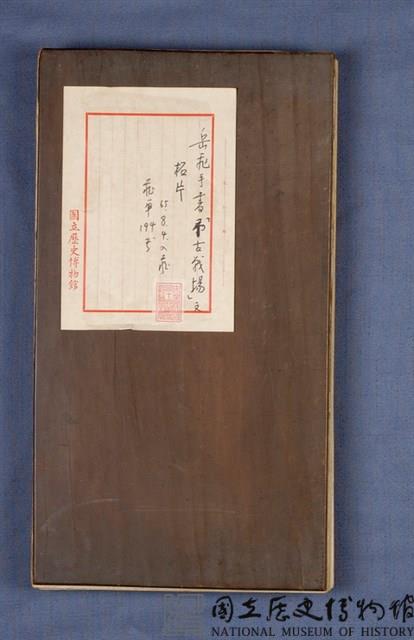 岳飛手書「弔古戰場」文
拓片
65.8.4.入藏
藏單194號
國立歷史博物館
國立歷史博物館
NATIONAL MUSEUM OF HISTORY